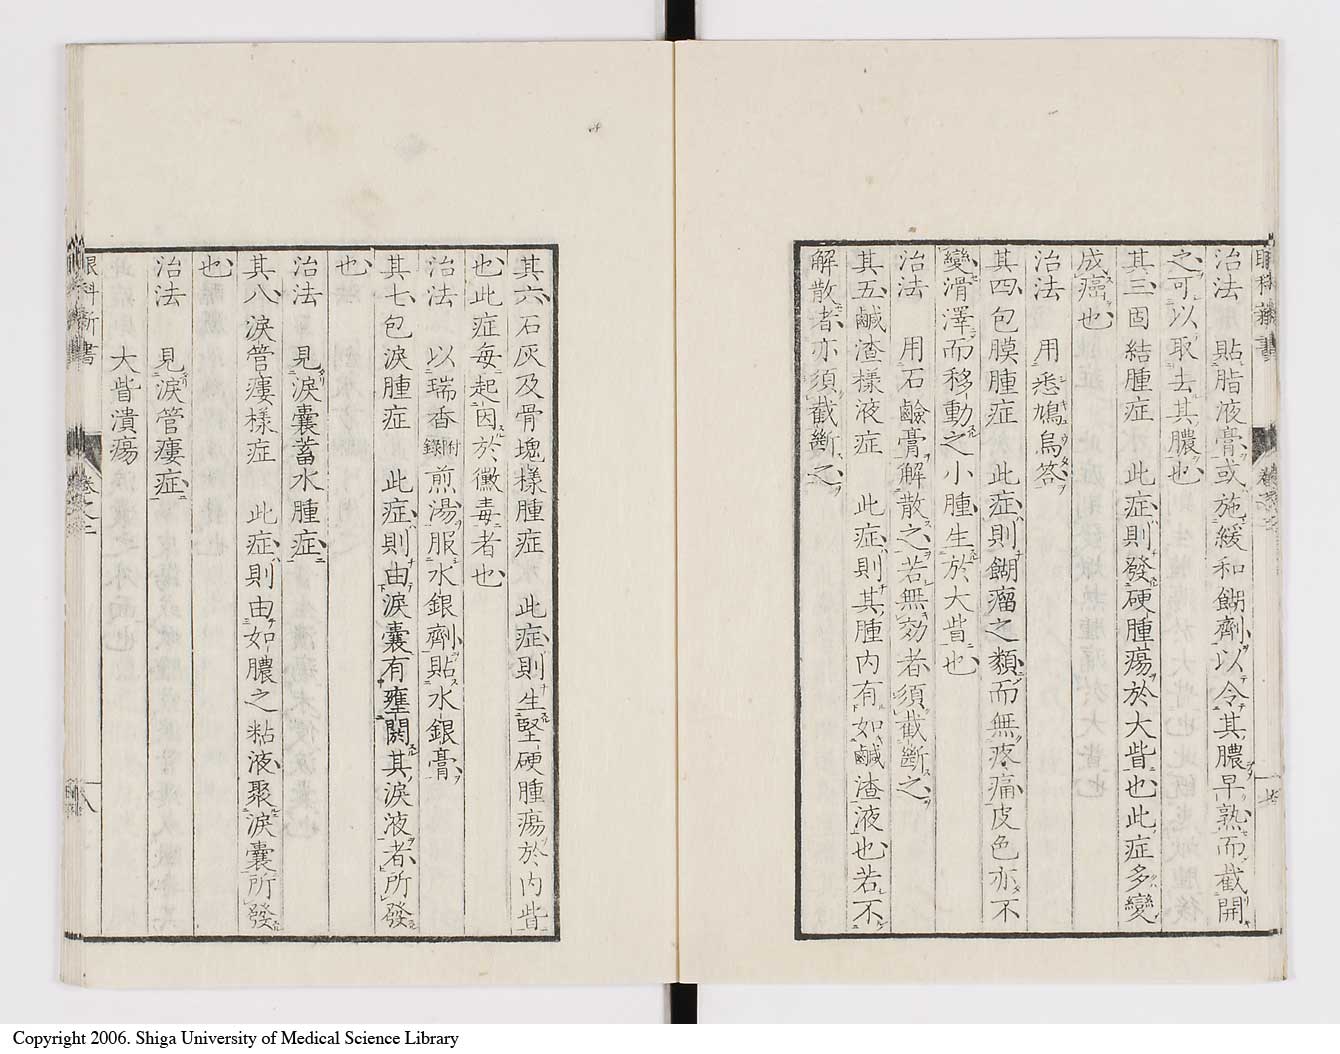 治法　貼脂液膏或施緩和餬劑以令其膿早熟而截開
之可以取去其膿也
其三固結腫症　此症則發硬腫瘍於大眥也此症多變
成癌也
治法　用悉鳩烏答
其四包膜腫症　此症則餬瘤之類而無疼痛皮色亦不
變滑澤而移動之小腫生於大眥也
治法　用石鹼膏解散之若無効者須截斷之
其五鹹渣樣液症　此症則其腫内有如鹹渣液也若不
解散者亦須截斷之
其六石灰及骨塊樣腫症　此症則生堅硬腫瘍於内眥
也此症每起因於黴毒者也
治法　以瑞香附錄煎湯服水銀劑貼水銀膏
其七包淚腫症　此症則由淚囊有壅閼其淚液者所發
也
治法　見淚囊蓄水腫症
其八淚管瘻樣症　此症則由如膿之粘液聚淚囊所發
也
治法　見淚管瘻症
大眥潰瘍
眼科新書
Copyright 2006. Shiga University of Medical Science Library